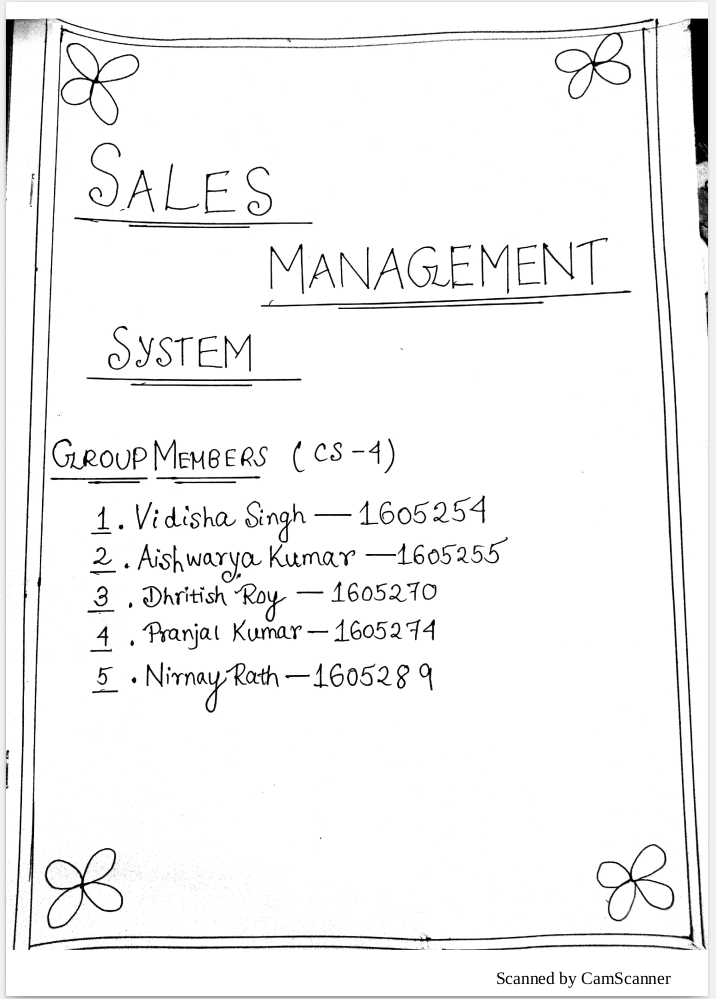 SALES
MANAGEMENT
SYSTEM
GROUP MEMBERS (CS-4)
1. Vidisha Singh — 1605254
2. Aishwarya Kumar — 1605255
3. Dhritish Roy — 1605270
4. Pranjal Kumar — 1605274
5. Nirnay Rath — 1605289
Scanned by CamScanner